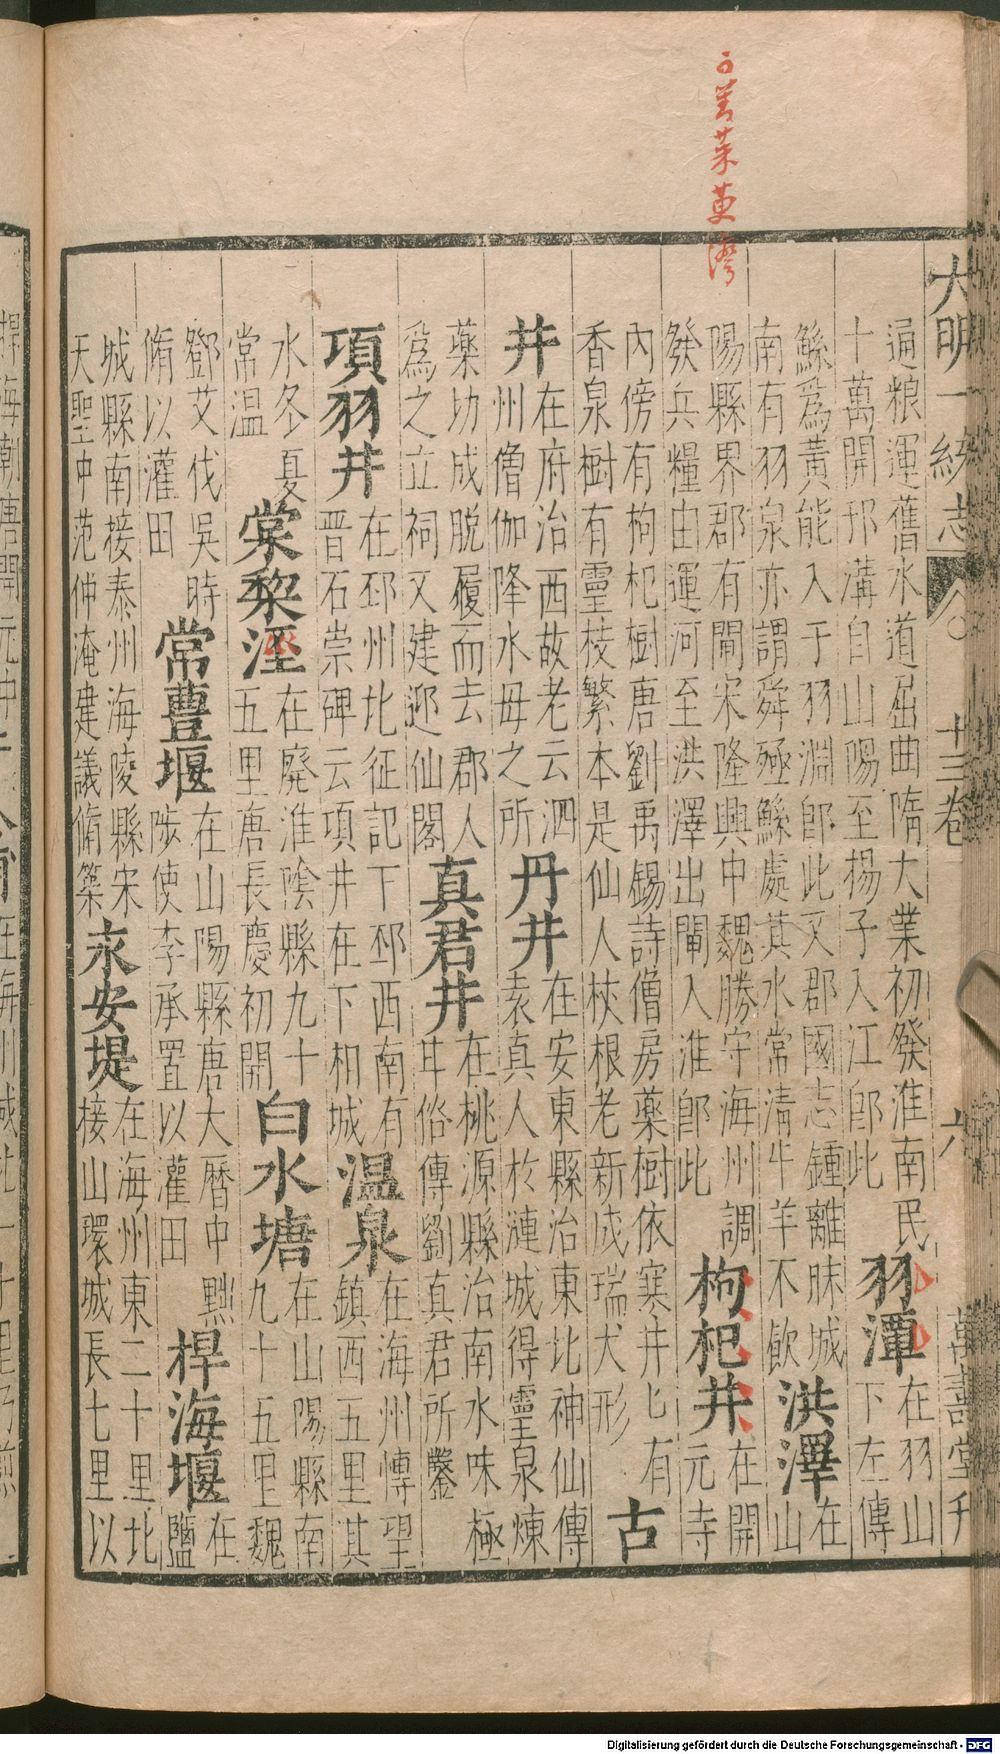 茱萸灣
大明一統志 十三卷 六 萬壽堂刋
通粮運舊水道屈曲隋大業初發淮南民
十萬開邗溝自山陽至揚子入江即此
羽潭
在羽山
下左傳
鯀爲黃能入于羽淵即此又郡國志鍾離眛城
南有羽泉亦謂舜殛鯀處其水常清牛羊不飲
洪澤
在
山
陽縣界郡有閘宋隆興中魏勝守海州調
發兵糧由運河至洪澤出閘入淮即此
枸杞井
在開
元寺
內傍有枸杞樹唐劉禹錫詩僧房藥樹依寒井匕有
香泉樹有靈枝繁本是仙人枝根老新成瑞犬形
古
井
在府治西故老云泗
州僧伽降水母之所
丹井
在安東縣治東北神仙傳
袁真人於漣城得靈泉煉
藥功成脫履而去郡人
爲之立祠又建迎仙閣
真君井
在桃源縣治南水味極
甘俗傳劉真君所鑿
項羽井
在邳州北征記下邳西南有
晋石崇碑云項井在下相城
温泉
在海州博望
鎮西五里其
水冬夏
常温
棠黎涇
在廢淮陰縣九十
五里唐長慶初開
白水塘
在山陽縣南
九十五里魏
鄧艾伐吳時
脩以灌田
常豊堰
在山陽縣唐大曆中黜
陟使李承置以灌田
桿海堰
在
鹽
城縣南接泰州海陵縣宋
天聖中范仲淹建議脩築
永安堤
在海州東二十里北
接山環城長七里以
Digitalisierung gefördert durch die Deutsche Forschungsgemeinschaft - DFG